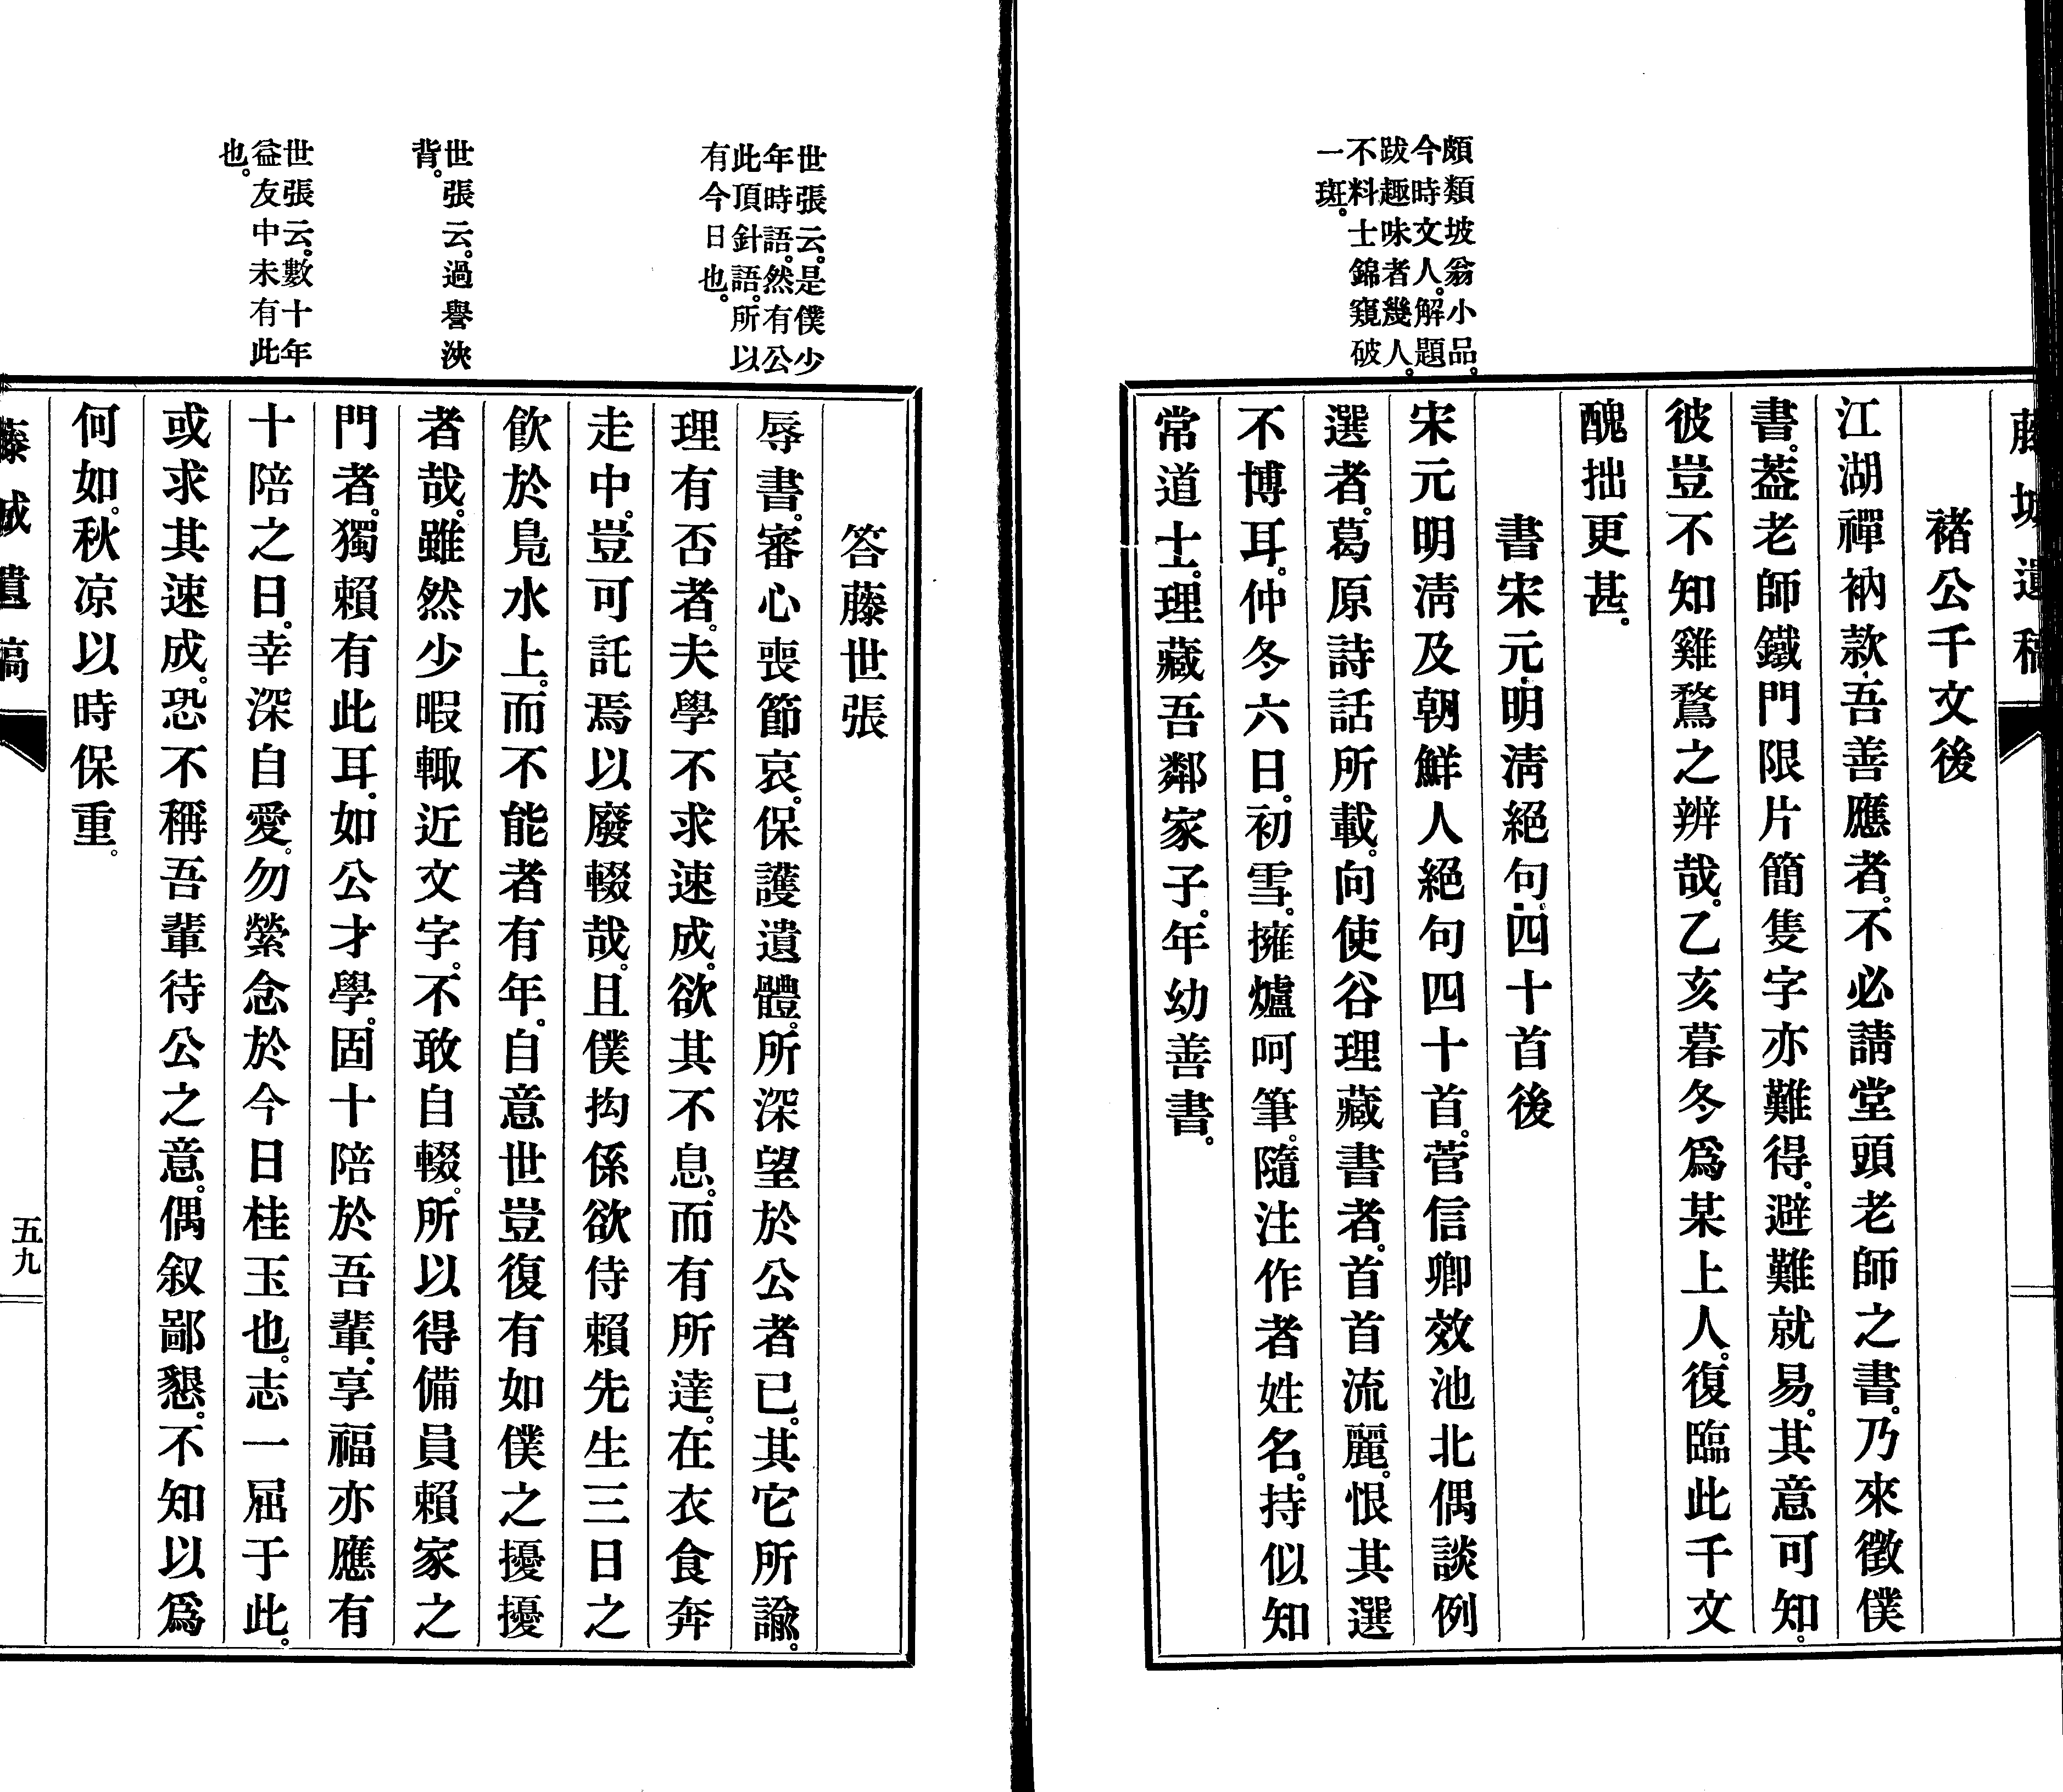 藤城遺稿
褚公千文後
江湖禪衲款吾善應者。不必請堂頭老師之書。乃來徵僕
書。葢老師鐵門限片簡隻字亦難得。避難就易。其意可知。
彼豈不知雞鶩之辨哉。乙亥暮冬爲某上人。復臨此千文
醜拙更甚。
書宋元明淸絕句四十首後
宋元明淸及朝鮮人絕句四十首。菅信卿效池北偶談例
選者。葛原詩話所載。向使谷理藏書者。首首流麗。恨其選
不博耳。仲冬六日。初雪。擁爐呵筆。隨注作者姓名。持似知
常道士。理藏吾鄰家子。年幼善書。
頗類坡翁小品。
今時文人。解題
跋趣味者幾人。
不料士錦窺破
一斑。
答藤世張
辱書。審心喪節哀。保護遺體。所深望於公者已。其它所諭。
理有否者。夫學不求速成。欲其不息。而有所達。在衣食奔
走中。豈可託焉以廢輟哉。且僕拘係欲侍賴先生三日之
飮於鳧水上。而不能者有年。自意世豈復有如僕之擾擾
者哉。雖然少暇輙近文字。不敢自輟。所以得備員賴家之
門者。獨賴有此耳。如公才學。固十陪於吾輩。享福亦應有
十陪之日。幸深自愛。勿縈念於今日桂玉也。志一屈于此。
或求其速成。恐不稱吾輩待公之意。偶叙鄙懇。不知以爲
何如。秋凉以時保重。
世張云。是僕少
年時語。然有公
此頂針語。所以
有今日也。
世張云。過譽浹
背。
世張云。數十年
益友中未有此
也。
藤城遺稿
五九